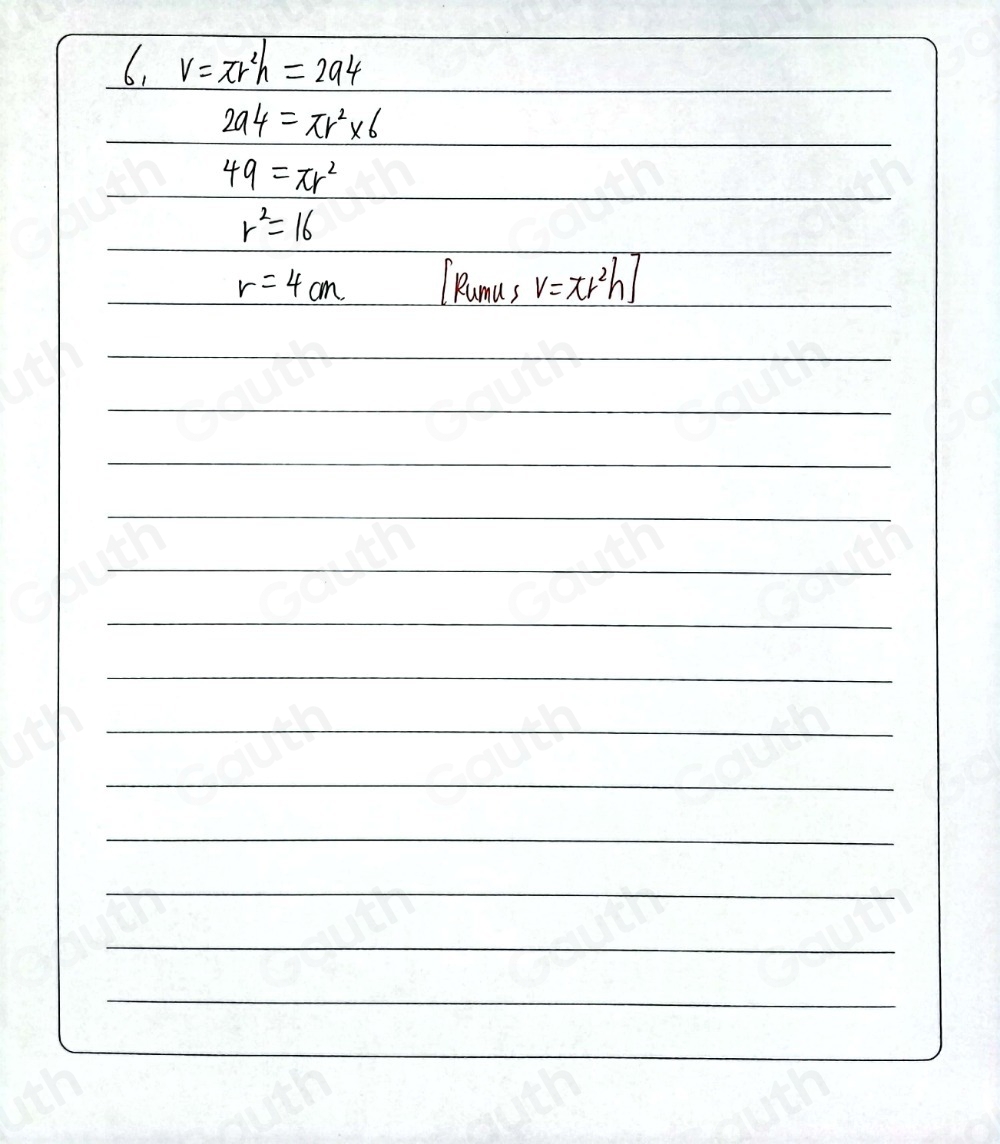 6. V = πr²h = 294
294 = πr² × 6
49 = πr²
r² = 16
r = 4 cm [Rumus V = πr²h]
Gauth